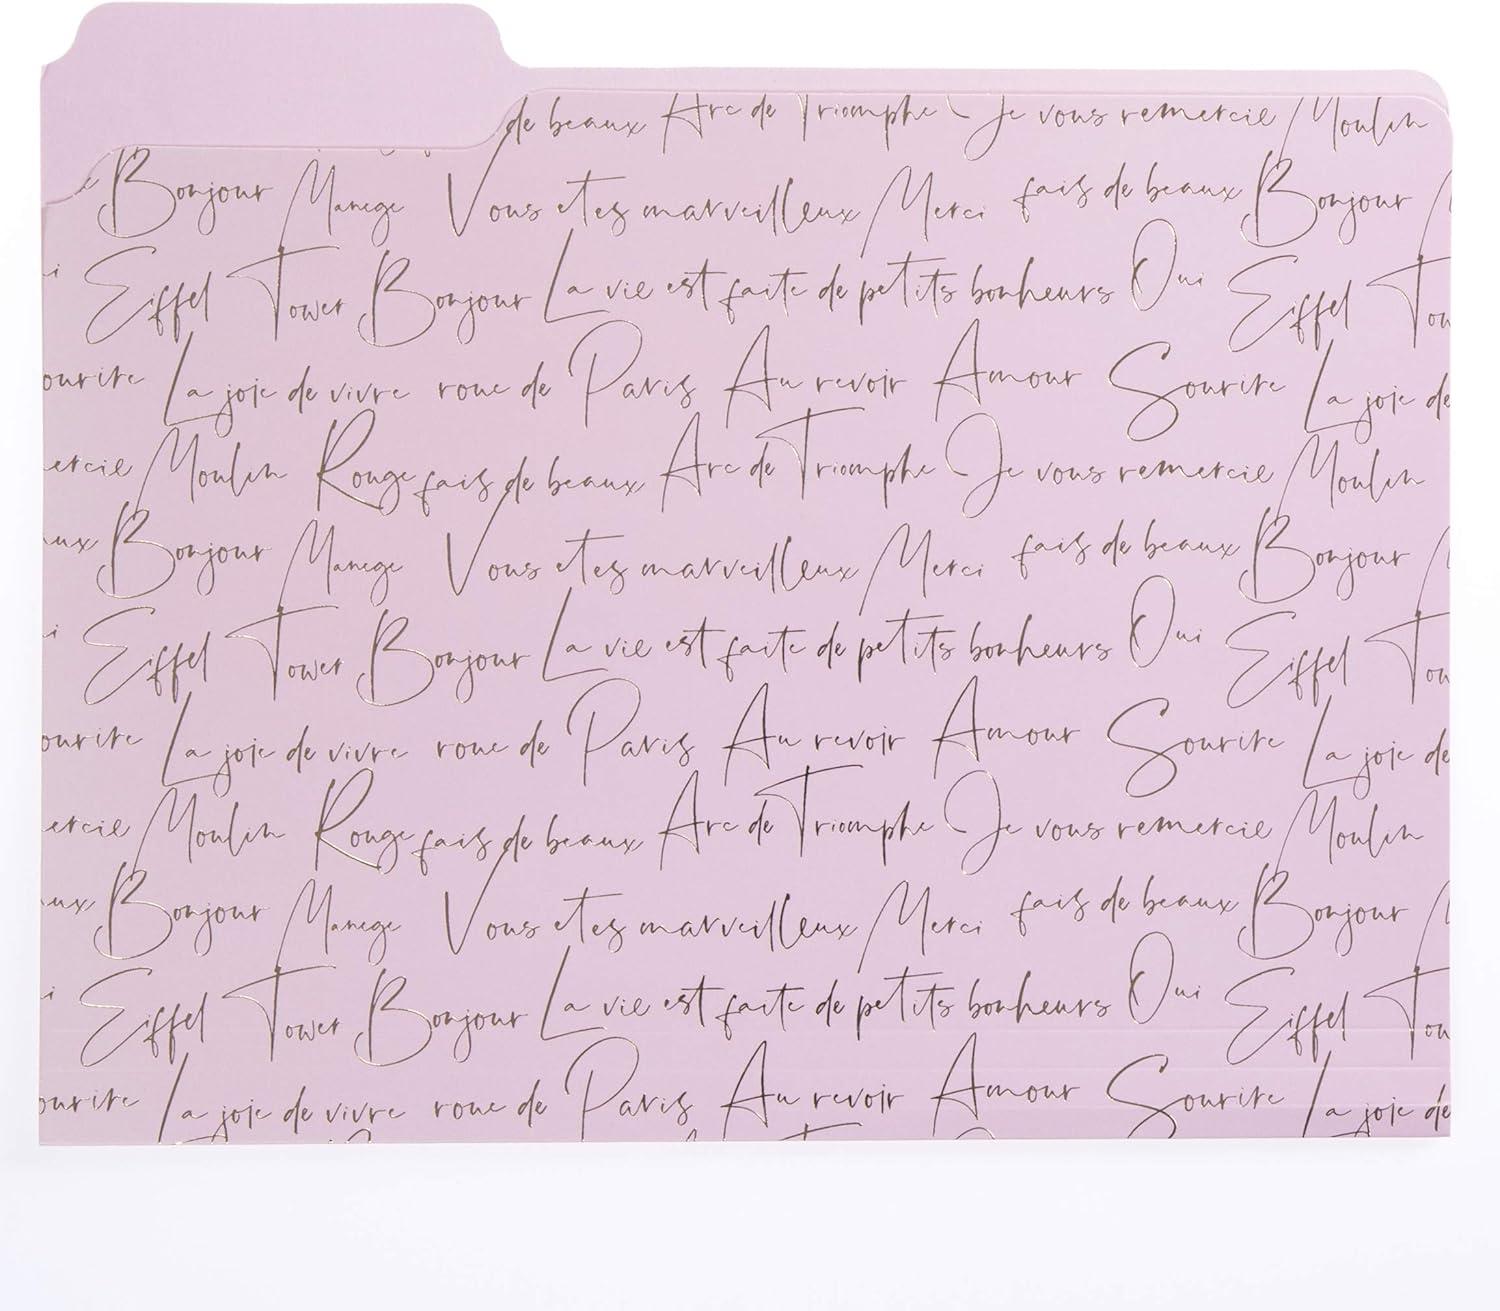 de beaux Arc de Triomphe Je vous remercie Moulin
Bonjour Manege Vous etes marveilleux Merci fais de beaux Bonjour
Eiffel Tower Bonjour La vie est faite de petits bonheurs Oui Eiffel Tow
ourire La joie de vivre roue de Paris Au revoir Amour Sourire La joie de
ercie Moulin Rouge fais de beaux Arc de Triomphe Je vous remercie Moulin
aux Bonjour Manege Vous etes marveilleux Merci fais de beaux Bonjour
i Eiffel Tower Bonjour La vie est faite de petits bonheurs Oui Eiffel Tow
ourire La joie de vivre roue de Paris Au revoir Amour Sourire La joie de
ercie Moulin Rouge fais de beaux Arc de Triomphe Je vous remercie Moulin
aux Bonjour Manege Vous etes marveilleux Merci fais de beaux Bonjour
i Eiffel Tower Bonjour La vie est faite de petits bonheurs Oui Eiffel Tow
ourire La joie de vivre roue de Paris Au revoir Amour Sourire La joie de